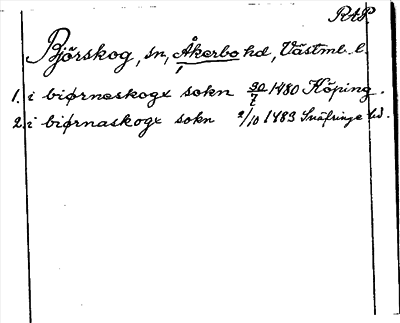 RAP
Björskog, sn, Åkerbo hd, Västml. l.
1. i biørneskogx sokn 20/7 1480 Köping.
2. i biørnaskogx sokn 2/10 1483 Snäfringe hd.